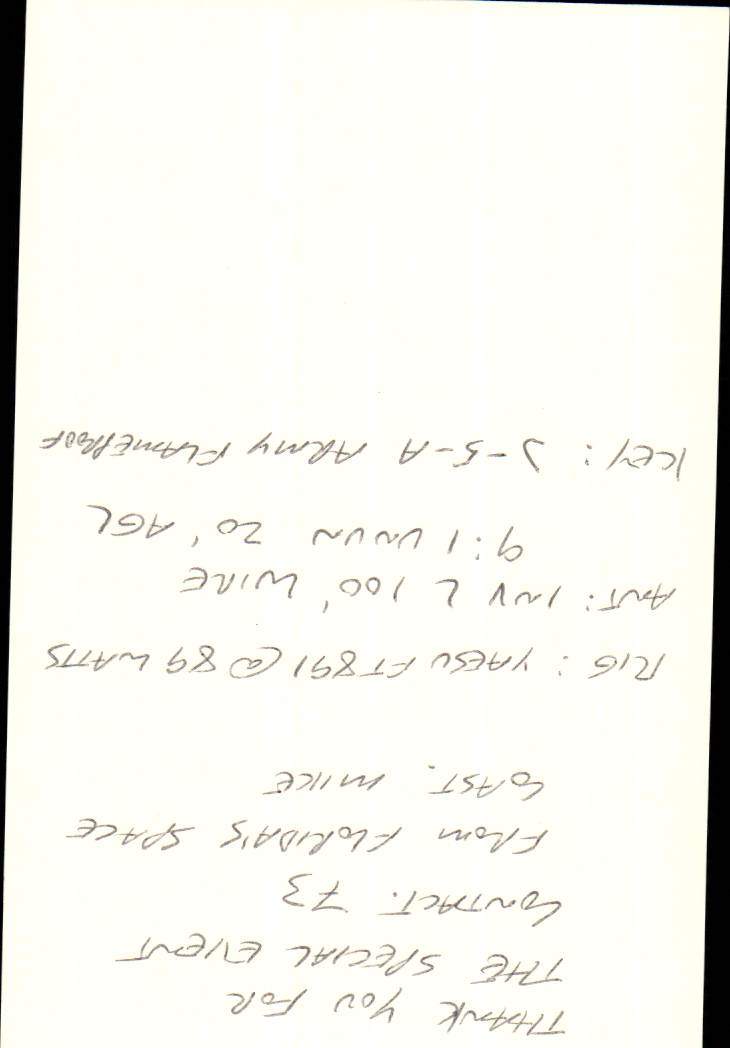 THANK YOU FOR
THE SPECIAL EVENT
CONTACT. 73
FROM FLORIDA'S SPACE
COAST. MIKE
RIG: YAESU FT891 @ 89 WATTS
ANT: INV L 100' WIRE
9:1 UNUN 20' AGL
KEY: J-5-A ARMY FLAMEPROOF